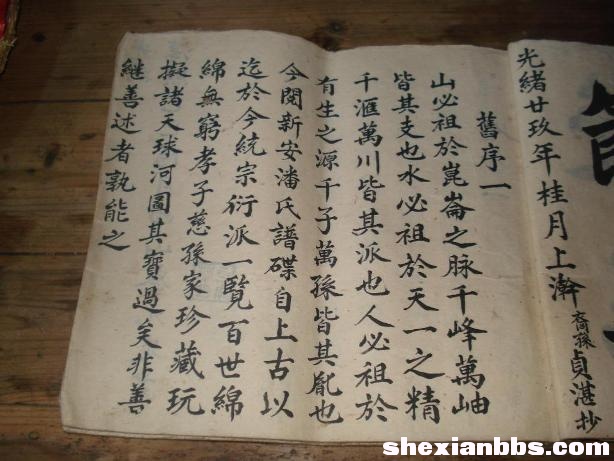 光緒廿玖年桂月上澣裔孫貞湛抄
舊序一
山必祖於崑崙之脉千峰萬岫
皆其支也水必祖於天一之精
千滙萬川皆其派也人必祖於
有生之源千子萬孫皆其胤也
今閱新安潘氏譜碟自上古以
迄於今統宗衍派一覽百世綿
綿無窮孝子慈孫家珍藏玩
擬諸天球河圖其寶過矣非善
継善述者孰能之
shexianbbs.com